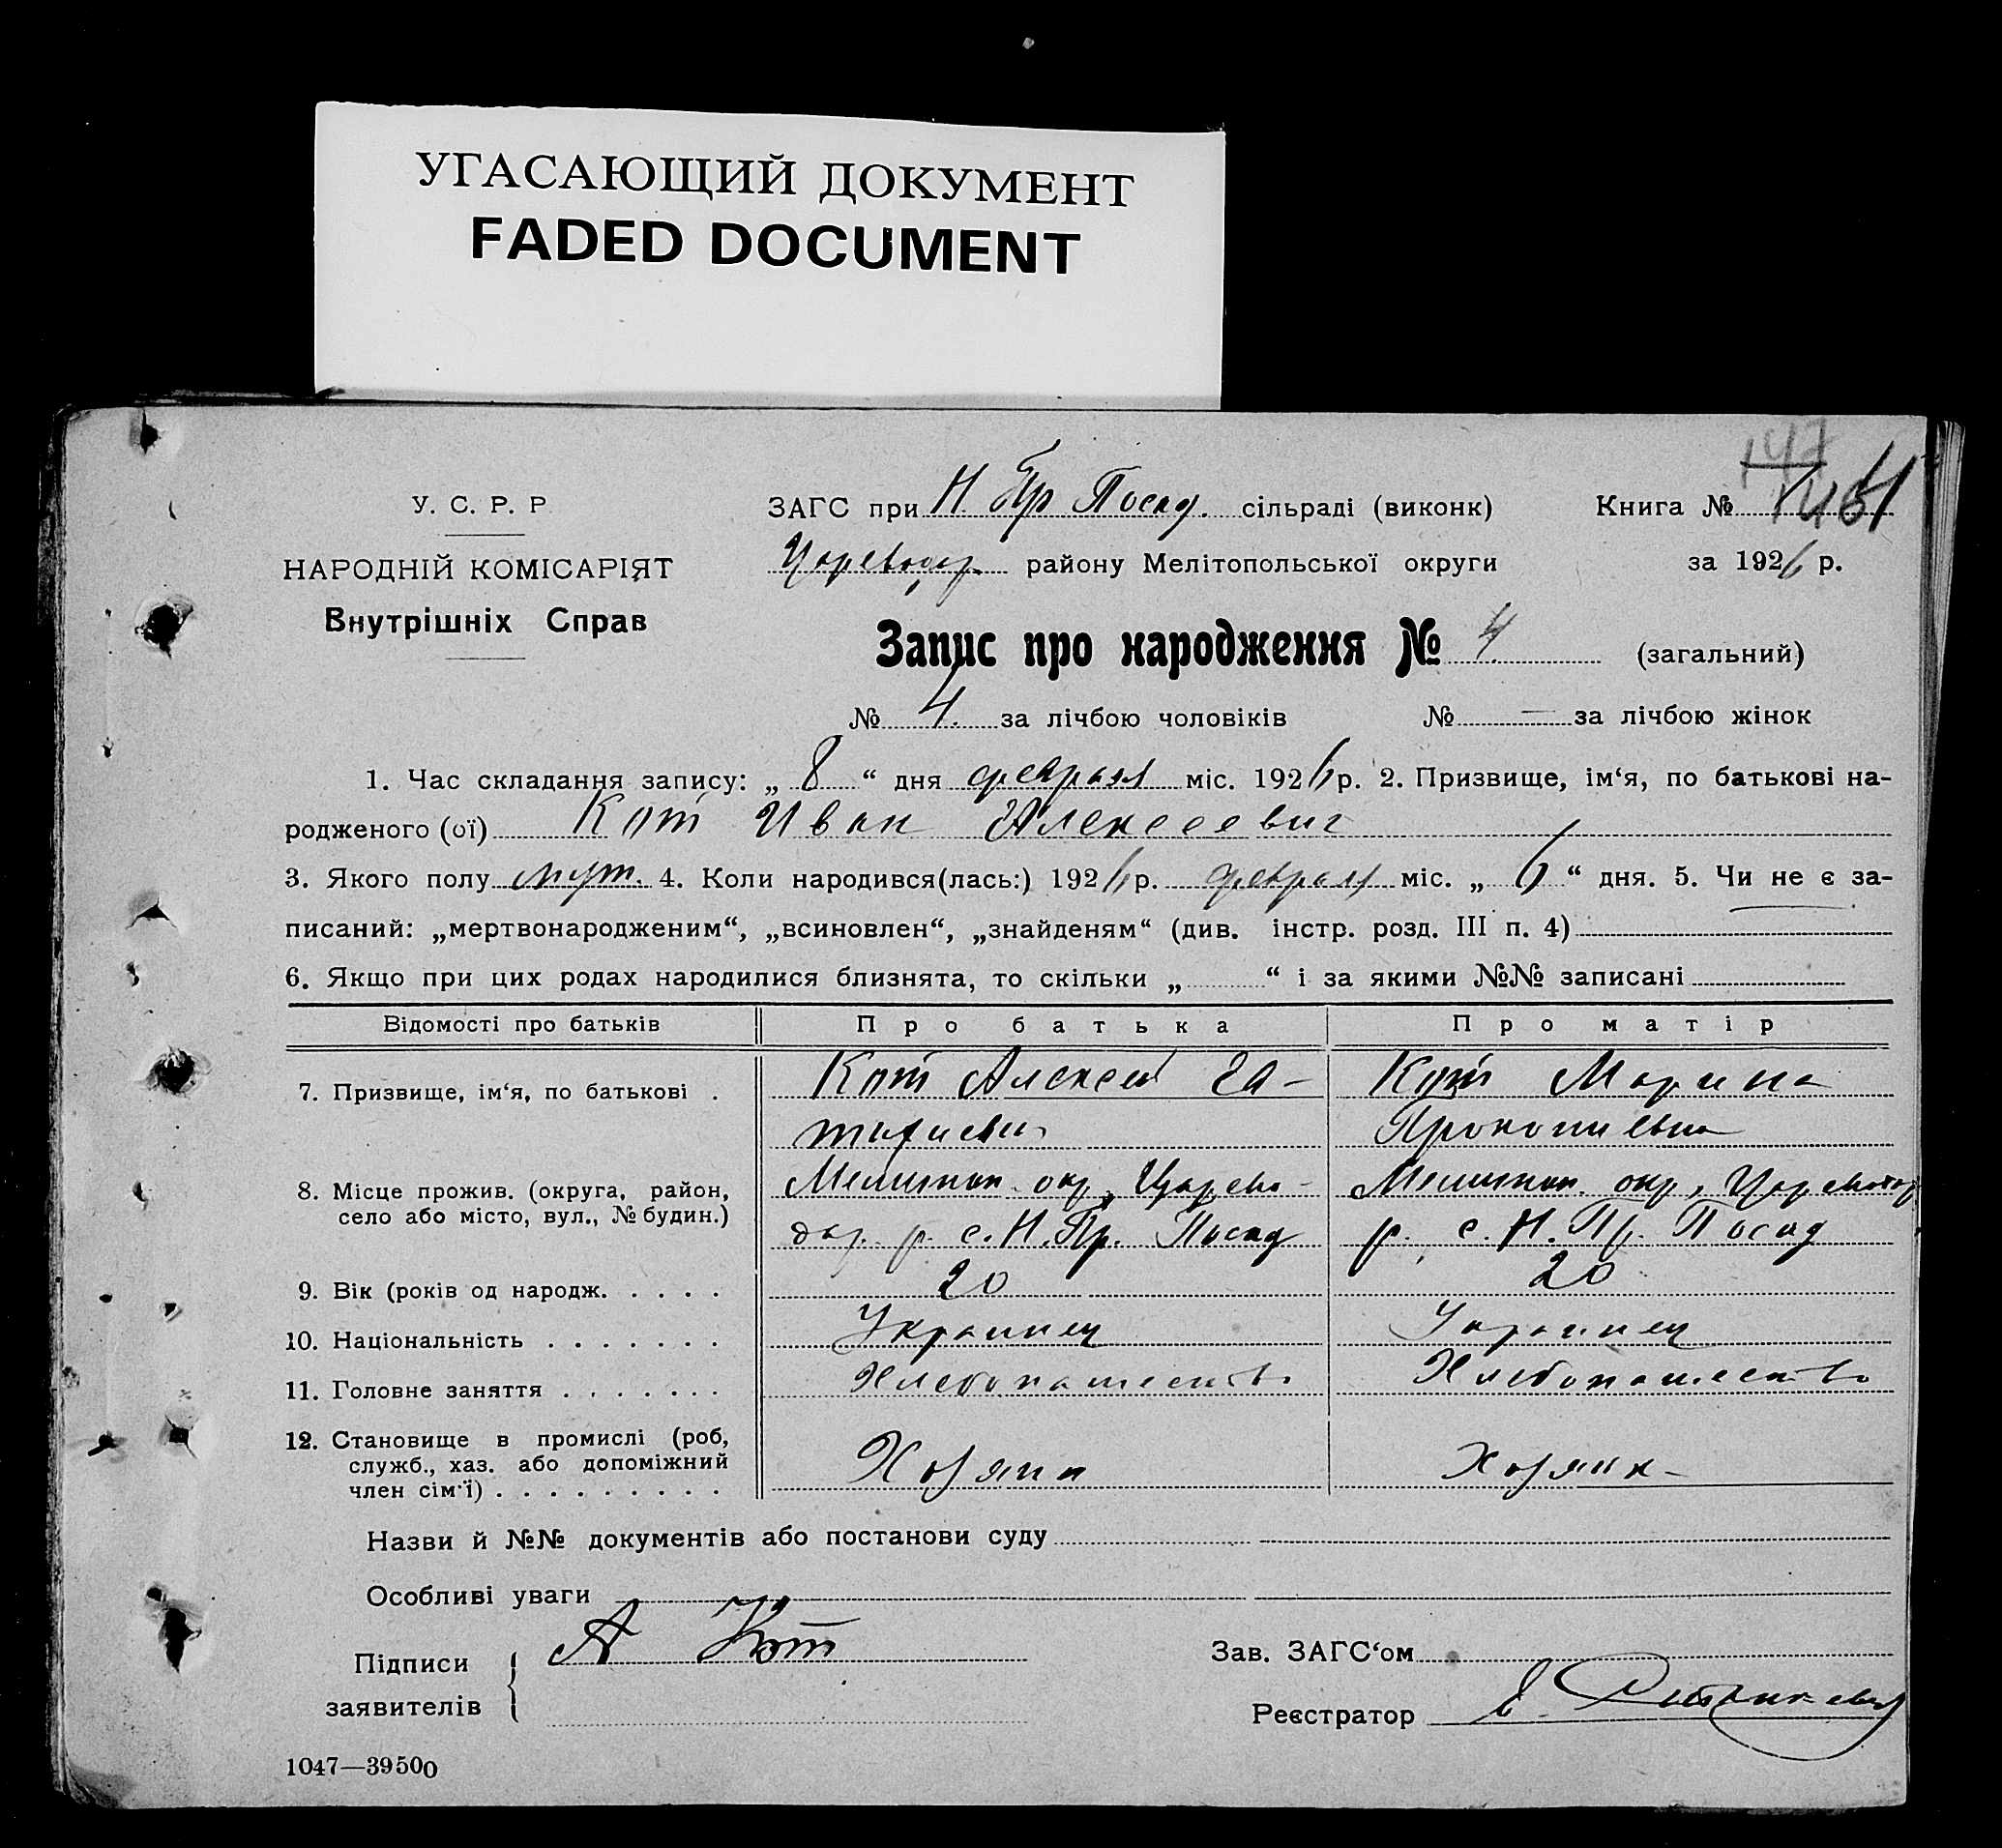 УГАСАЮЩИЙ ДОКУМЕНТ
FADED DOCUMENT
147
У. С. Р. Р
НАРОДНІЙ КОМІСАРІЯТ
Внутрішніх Справ
ЗАГС при Н. Пр Посад. сільраді (виконк) Книга №
Цареводар. району Мелітопольської округи за 1926 р.
Запис про народження № 4 (загальний)
№ 4. за лічбою чоловіків № — за лічбою жінок
1. Час складання запису: „ 8 “ дня февраля міс. 1926 р. 2. Призвище, ім‘я, по батькові на-
родженого (ої) Кот Иван Алексеевич
3. Якого полу муж. 4. Коли народився(лась:) 1926 р. февраля міс. „ 6 “ дня. 5. Чи не є за-
писаний: „мертвонародженим“, „всиновлен“, „знайденям“ (див. інстр. розд. III п. 4)
6. Якщо при цих родах народилися близнята, то скільки „ “ і за якими №№ записані
Відомості про батьків Про батька Про матір
7. Призвище, ім‘я, по батькові . Кот Алексей Кот Марина
Прокопиевна
8. Місце прожив. (округа, район, Мелитоп. окр, Царево- Мелитоп. окр, Цареводар
село або місто, вул., № будин.) дар. р. с. Н. Пр. Посад р. с. Н. Пр. Посад
9. Вік (років од народж. . . . . 20 20
10. Національність . . . . . . . Украинец Украинец
11. Головне заняття . . . . . . . Хлебопашество Хлебопашество
12. Становище в промислі (роб,
служб., хаз. або допоміжний Хозяин Хозяйка
член сім‘ї) . . . . . . . . .
Назви й №№ документів або постанови суду
Особливі уваги
Підписи А Кот Зав. ЗАГС‘ом
заявителів Реєстратор
1047—39500